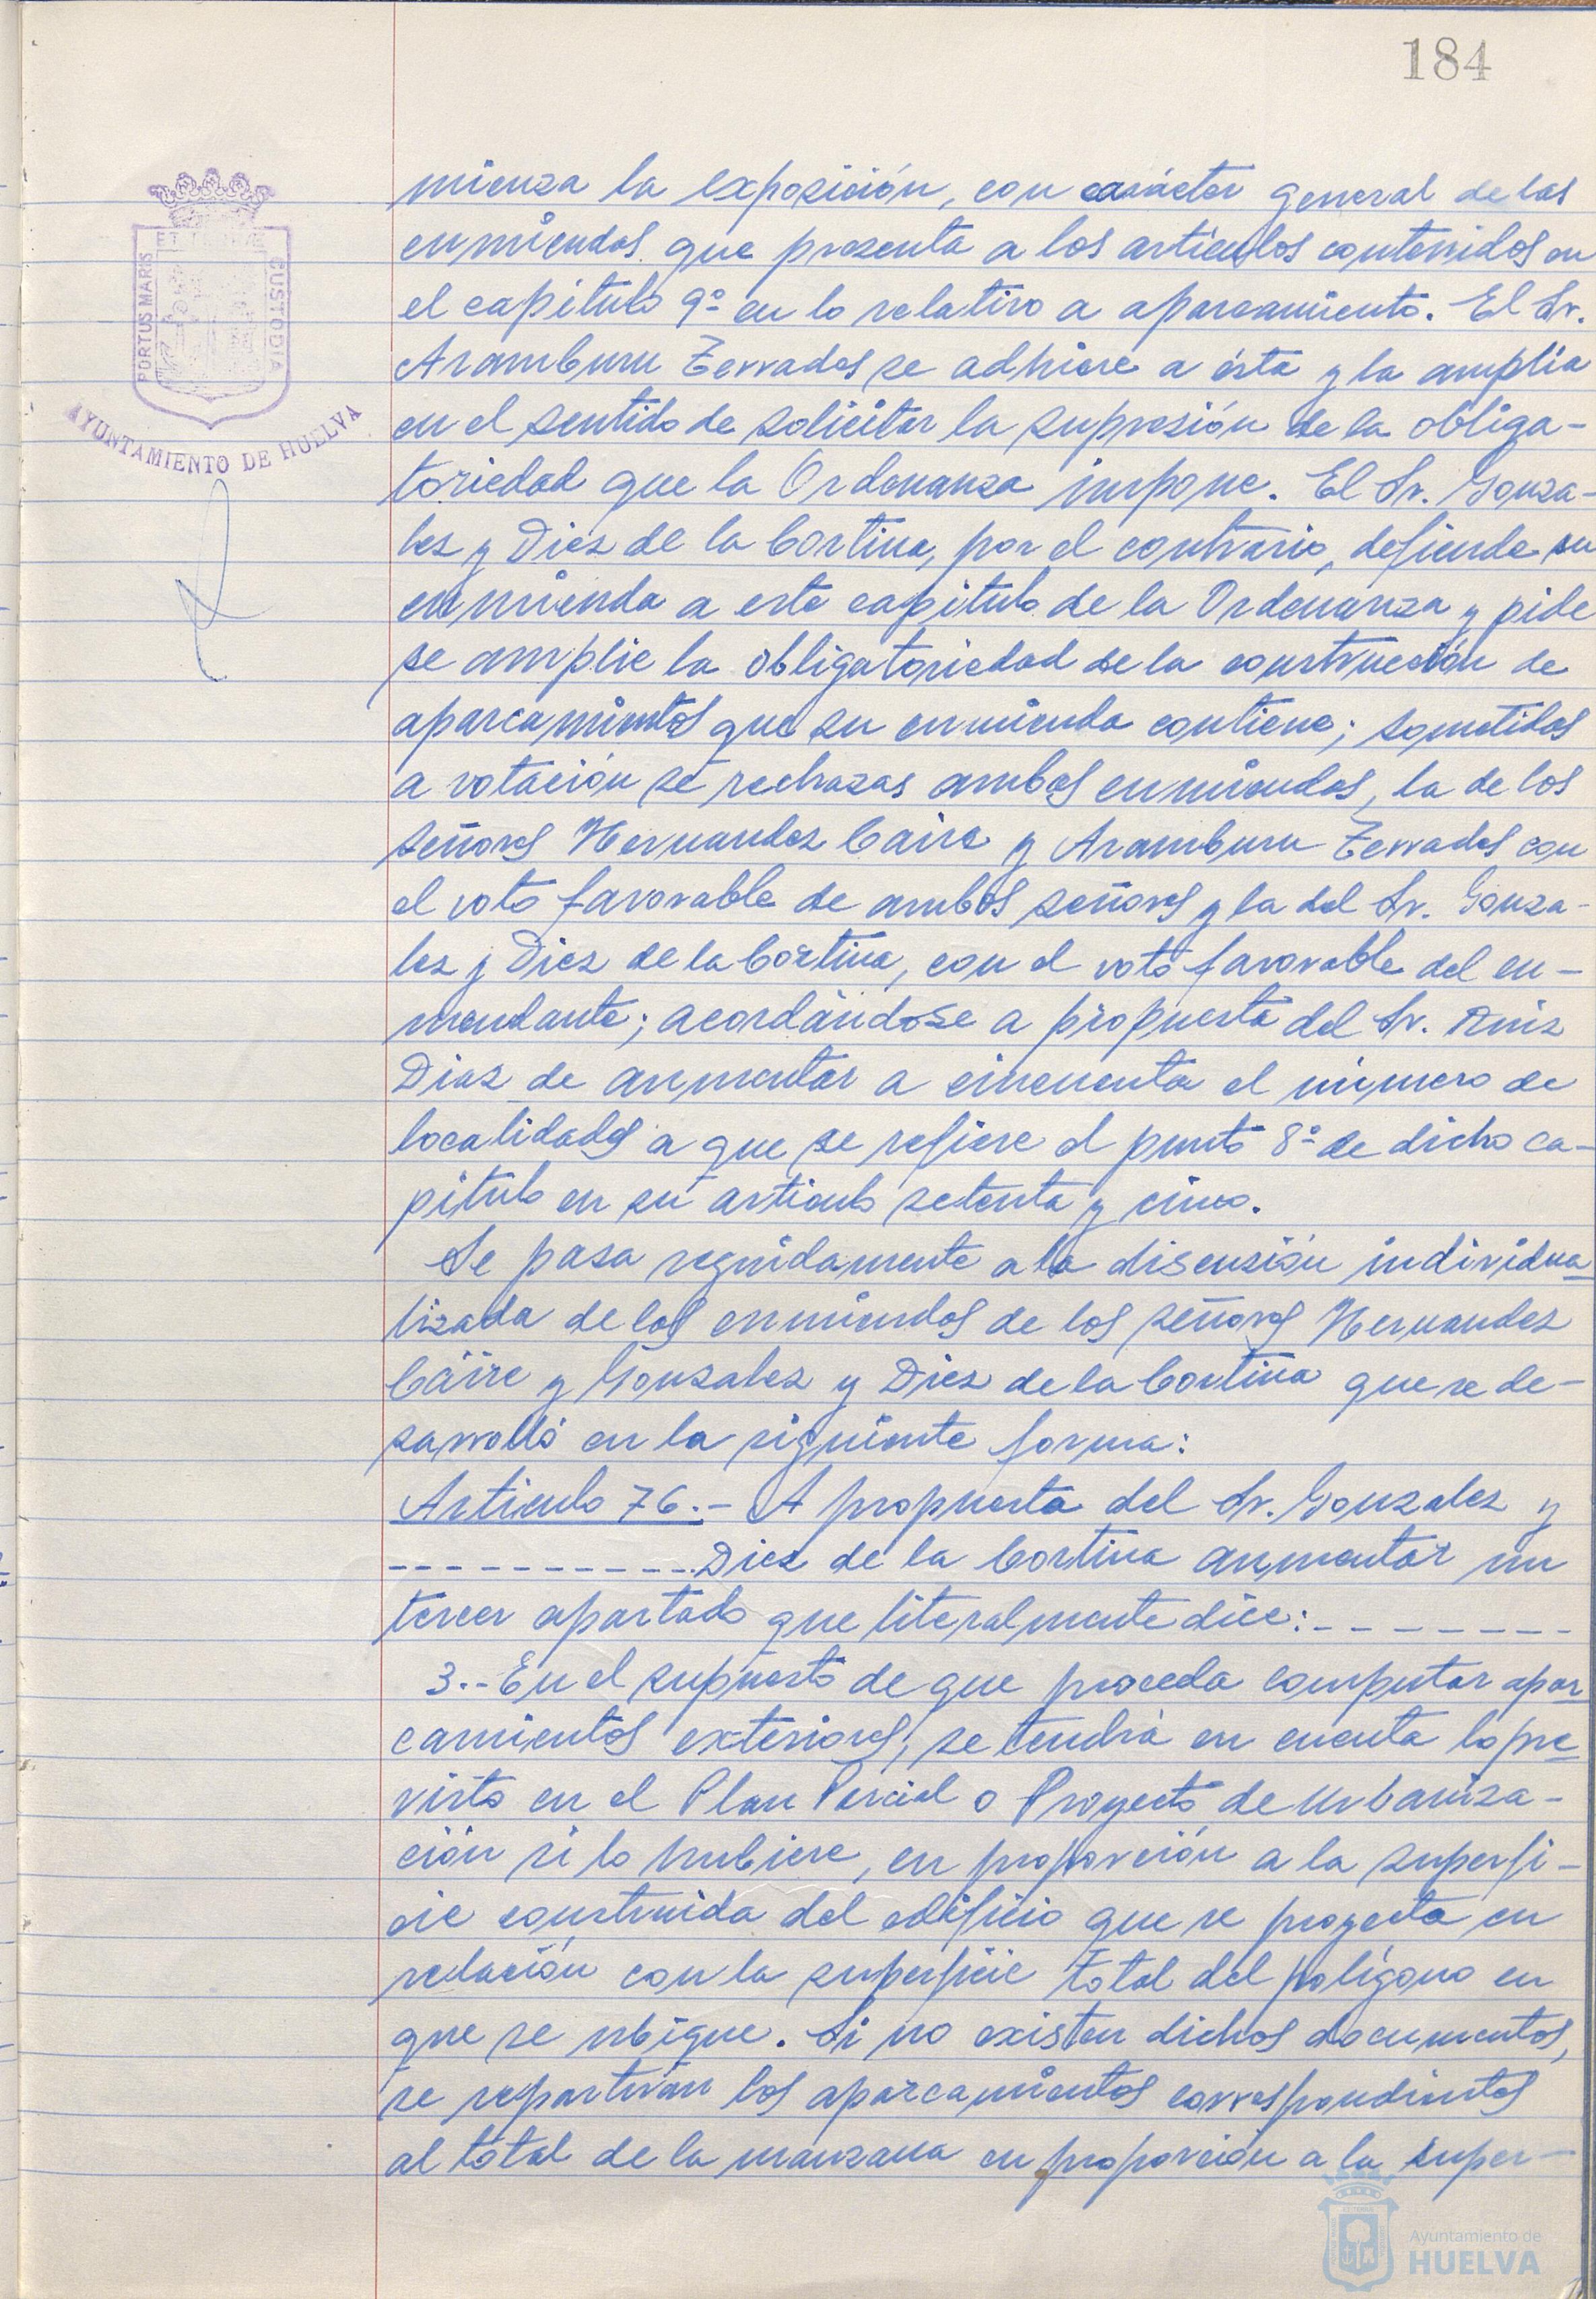 184
PORTUS MARIS
CUSTODIA
AYUNTAMIENTO DE HUELVA
mienza la exposición, con carácter general de las
enmiendas que presenta a los artículos contenidos en
el capítulo 9º en lo relativo a aparcamiento. El Sr.
Aramburu Terrades se adhiere a ésta y la amplia
en el sentido de solicitar la supresión de la obliga-
toriedad que la Ordenanza impone. El Sr. Gonza-
lez y Diez de la Cortina, por el contrario, defiende su
enmienda a este capitulo de la Ordenanza y pide
se amplie la obligatoriedad de la construcción de
aparcamientos que su enmienda contiene; sometidas
a votación se rechazas ambas enmiendas, la de los
señores Hernandez Caire y Aramburu Terrades con
el voto favorable de ambos señores y la del Sr. Gonza-
lez y Diez de la Cortina, con el voto favorable del en-
mendante; acordándose a propuesta del Sr. Ruiz
Diaz de aumentar a cincuenta el número de
localidades a que se refiere el punto 8º de dicho ca-
pitulo en su articulo setenta y cinco.
Se pasa seguidamente a la discusión individua
lizada de las enmiendas de los señores Hernandez
Caire y Gonzalez y Diez de la Cortina que se de-
sarrolló en la siguiente forma:
Articulo 76.- A propuesta del Sr. Gonzalez y
- - - - - - - - - - - Diez de la Cortina aumentar un
tercer apartado que literalmente dice: - - - - - - - -
3.- En el supuesto de que proceda computar apar
camientos exteriores, se tendrá en cuenta lo pre
visto en el Plan Parcial o Proyecto de Urbaniza-
ción si lo hubiere, en proporción a la superfi-
cie construida del edificio que se proyecta en
relación con la superficie total del polígono en
que se ubique. Si no existen dichos documentos,
se repartirán los aparcamientos correspondientes
al total de la manzana en proporción a la super-
Ayuntamiento de
HUELVA